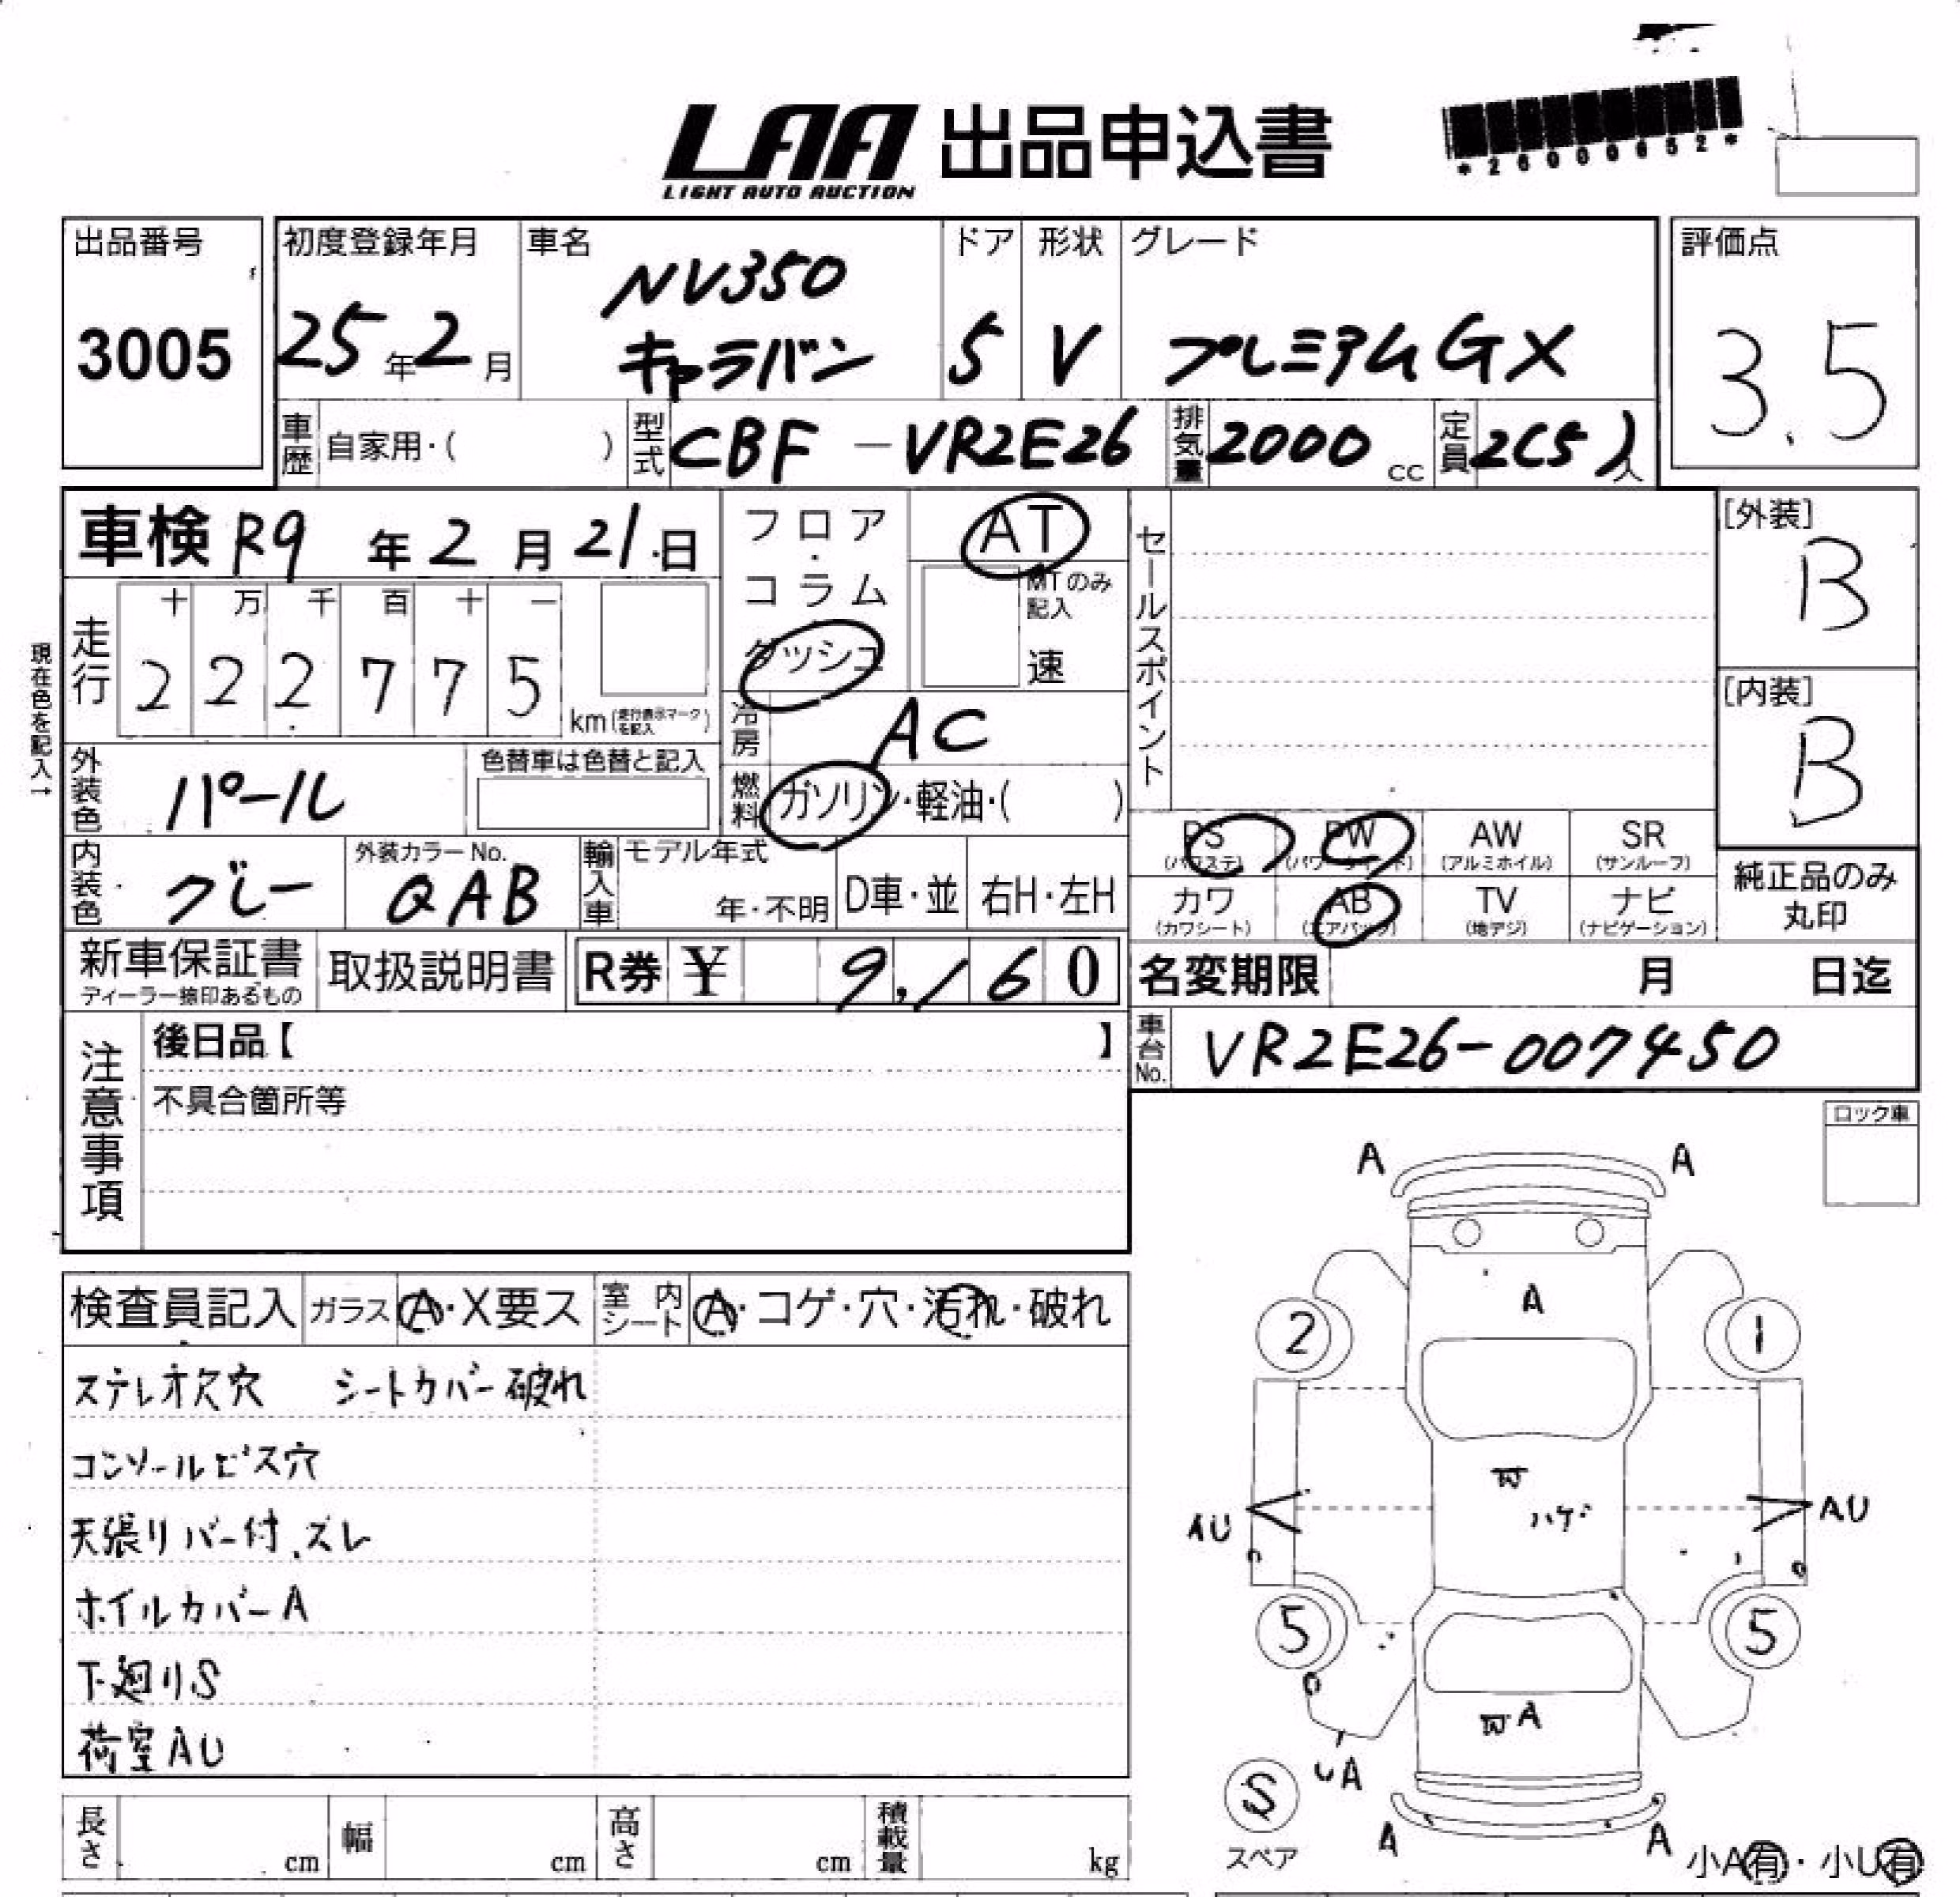 LAA 出品申込書
LIGHT AUTO AUCTION
*26000652*
出品番号
3005
初度登録年月
25年2月
車名
NV350
キャラバン
ドア
5
形状
V
グレード
プレミアムGX
評価点
3.5
車歴 自家用・( )
型式 CBF-VR2E26
排気量 2000cc
定員 2(5)人
車検 R9年2月21日
フロア・コラム
ダッシュ
AT
MTのみ記入
速
セールスポイント
[外装]
B
[内装]
B
現在色を記入→
走行
十 万 千 百 十 一
2 2 2 7 7 5 km (走行表示マークを記入)
冷房 AC
外装色 パール
色替車は色替と記入
燃料 ガソリン・軽油・( )
PS (パワステ)
PW (パワーウインド)
AW (アルミホイル)
SR (サンルーフ)
内装色 グレー
外装カラーNo.
QAB
輸入車 モデル年式
年・不明
D車・並
右H・左H
カワ (カワシート)
AB (エアバック)
TV (地デジ)
ナビ (ナビゲーション)
純正品のみ
丸印
新車保証書
ディーラー捺印あるもの
取扱説明書
R券 ¥ 9,160
名変期限 月 日迄
注意事項
後日品【 】
不具合箇所等
車台No. VR2E26-007450
ロック車
検査員記入 ガラス A・X要ス 室内シート A・コゲ・穴・汚れ・破れ
ステレオ欠穴 シートカバー破れ
コンソールビス穴
天張りバー付、ズレ
ホイルカバーA
下廻りS
荷室AU
A A
A
2 1
W
ハゲ
AU AU
5 5
WA
UA
S
スペア
A A
小A有・小U有
長さ cm 幅 cm 高さ cm 積載量 kg